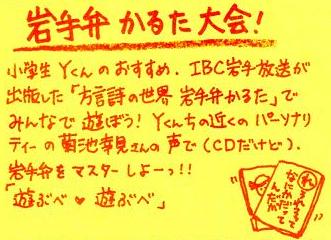 岩手弁 かるた 大会!
小学生 Yくんの おすすめ. IBC岩手放送が
出版した「方言詩の世界 岩手弁かるた」で
みんなで 遊ぼう! Yくんちの近くの パーソナリ
ティーの 菊池幸見さんの 声で(CDだけど).
岩手弁を マスターしよーっ!!
「遊ぶべ♥遊ぶべ」
れ